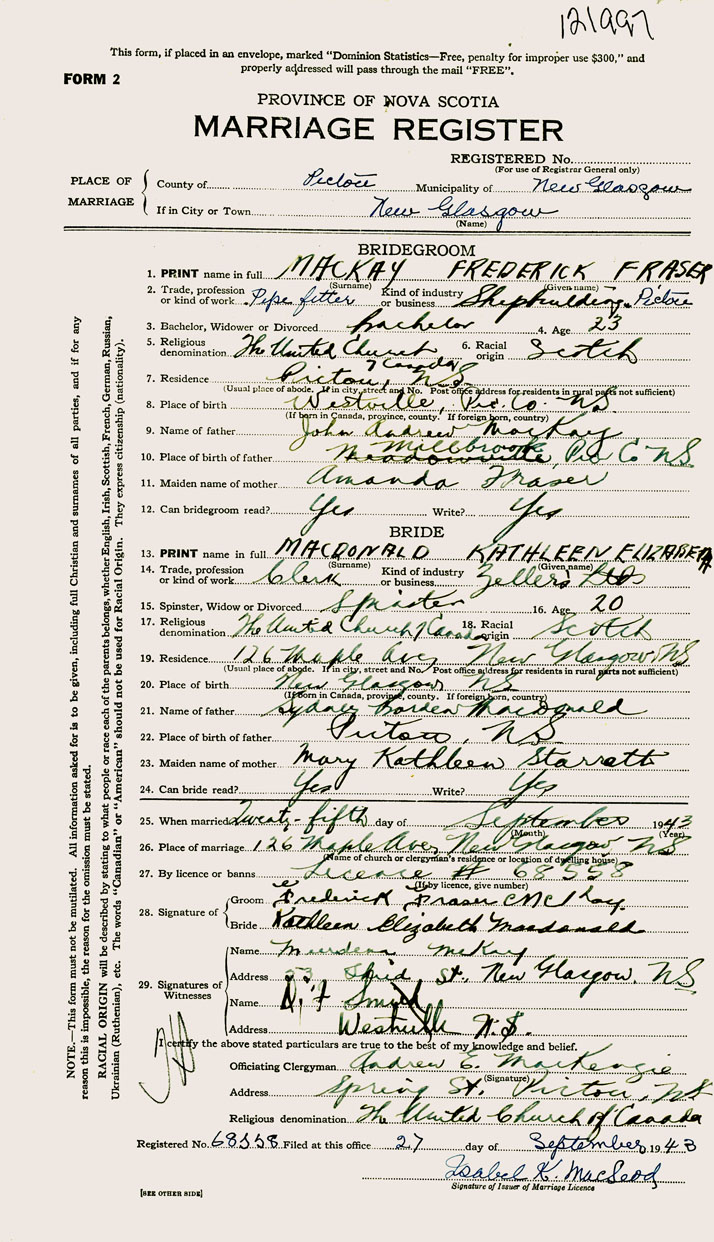 121997
This form, if placed in an envelope, marked "Dominion Statistics—Free, penalty for improper use $300," and
properly addressed will pass through the mail "FREE".
FORM 2
PROVINCE OF NOVA SCOTIA
MARRIAGE REGISTER
REGISTERED No.
(For use of Registrar General only)
PLACE OF MARRIAGE
County of Pictou Municipality of New Glasgow
If in City or Town New Glasgow
(Name)
BRIDEGROOM
1. PRINT name in full MACKAY FREDERICK FRASER
(Surname) (Given name)
2. Trade, profession or kind of work Pipe fitter Kind of industry or business Shipbuilding, Pictou
3. Bachelor, Widower or Divorced Bachelor 4. Age 23
5. Religious denomination The United Church of Canada 6. Racial origin Scotch
7. Residence Pictou, N.S.
(Usual place of abode. If in city, street and No. Post office address for residents in rural parts not sufficient)
8. Place of birth Westville, Pic. Co. NS
(If born in Canada, province, county. If foreign born, country)
9. Name of father John Andrew MacKay
10. Place of birth of father Millbrook, Pic Co NS
11. Maiden name of mother Amanda Fraser
12. Can bridegroom read? Yes Write? Yes
BRIDE
13. PRINT name in full MACDONALD KATHLEEN ELIZABETH
(Surname) (Given name)
14. Trade, profession or kind of work Clerk Kind of industry or business Zellers Ltd
15. Spinster, Widow or Divorced Spinster 16. Age 20
17. Religious denomination The United Church of Canada 18. Racial origin Scotch
19. Residence 126 Maple Ave, New Glasgow, NS
(Usual place of abode. If in city, street and No. Post office address for residents in rural parts not sufficient)
20. Place of birth New Glasgow NS
(If born in Canada, province, county. If foreign born, country)
21. Name of father Sydney Borden Macdonald
22. Place of birth of father Pictou, NS
23. Maiden name of mother Mary Kathleen Starratt
24. Can bride read? Yes Write? Yes
25. When married Twenty-fifth day of September 1943
(Month) (Year)
26. Place of marriage 126 Maple Ave, New Glasgow NS
(Name of church or clergyman's residence or location of dwelling house)
27. By licence or banns License # 68558
(If by licence, give number)
28. Signature of
Groom Frederick Fraser McKay
Bride Kathleen Elizabeth Macdonald
29. Signatures of Witnesses
Name Murdena McKay
Address St., New Glasgow, NS
Name Smith
Address Westville N.S.
I certify the above stated particulars are true to the best of my knowledge and belief.
Officiating Clergyman Andrew E. MacKenzie
(Signature)
Address Spring St., Pictou, NS
Religious denomination The United Church of Canada
Registered No. 68558 Filed at this office 27 day of September 1943
Isabel K. MacLeod
Signature of Issuer of Marriage Licence
[SEE OTHER SIDE]
NOTE.—This form must not be mutilated. All information asked for is to be given, including full Christian and surnames of all parties, and if for any
reason this is impossible, the reason for the omission must be stated.
RACIAL ORIGIN will be described by stating to what people or race each of the parents belongs, whether English, Irish, Scottish, French, German, Russian,
Ukrainian (Ruthenian), etc. The words "Canadian" or "American" should not be used for Racial Origin. They express citizenship (nationality).